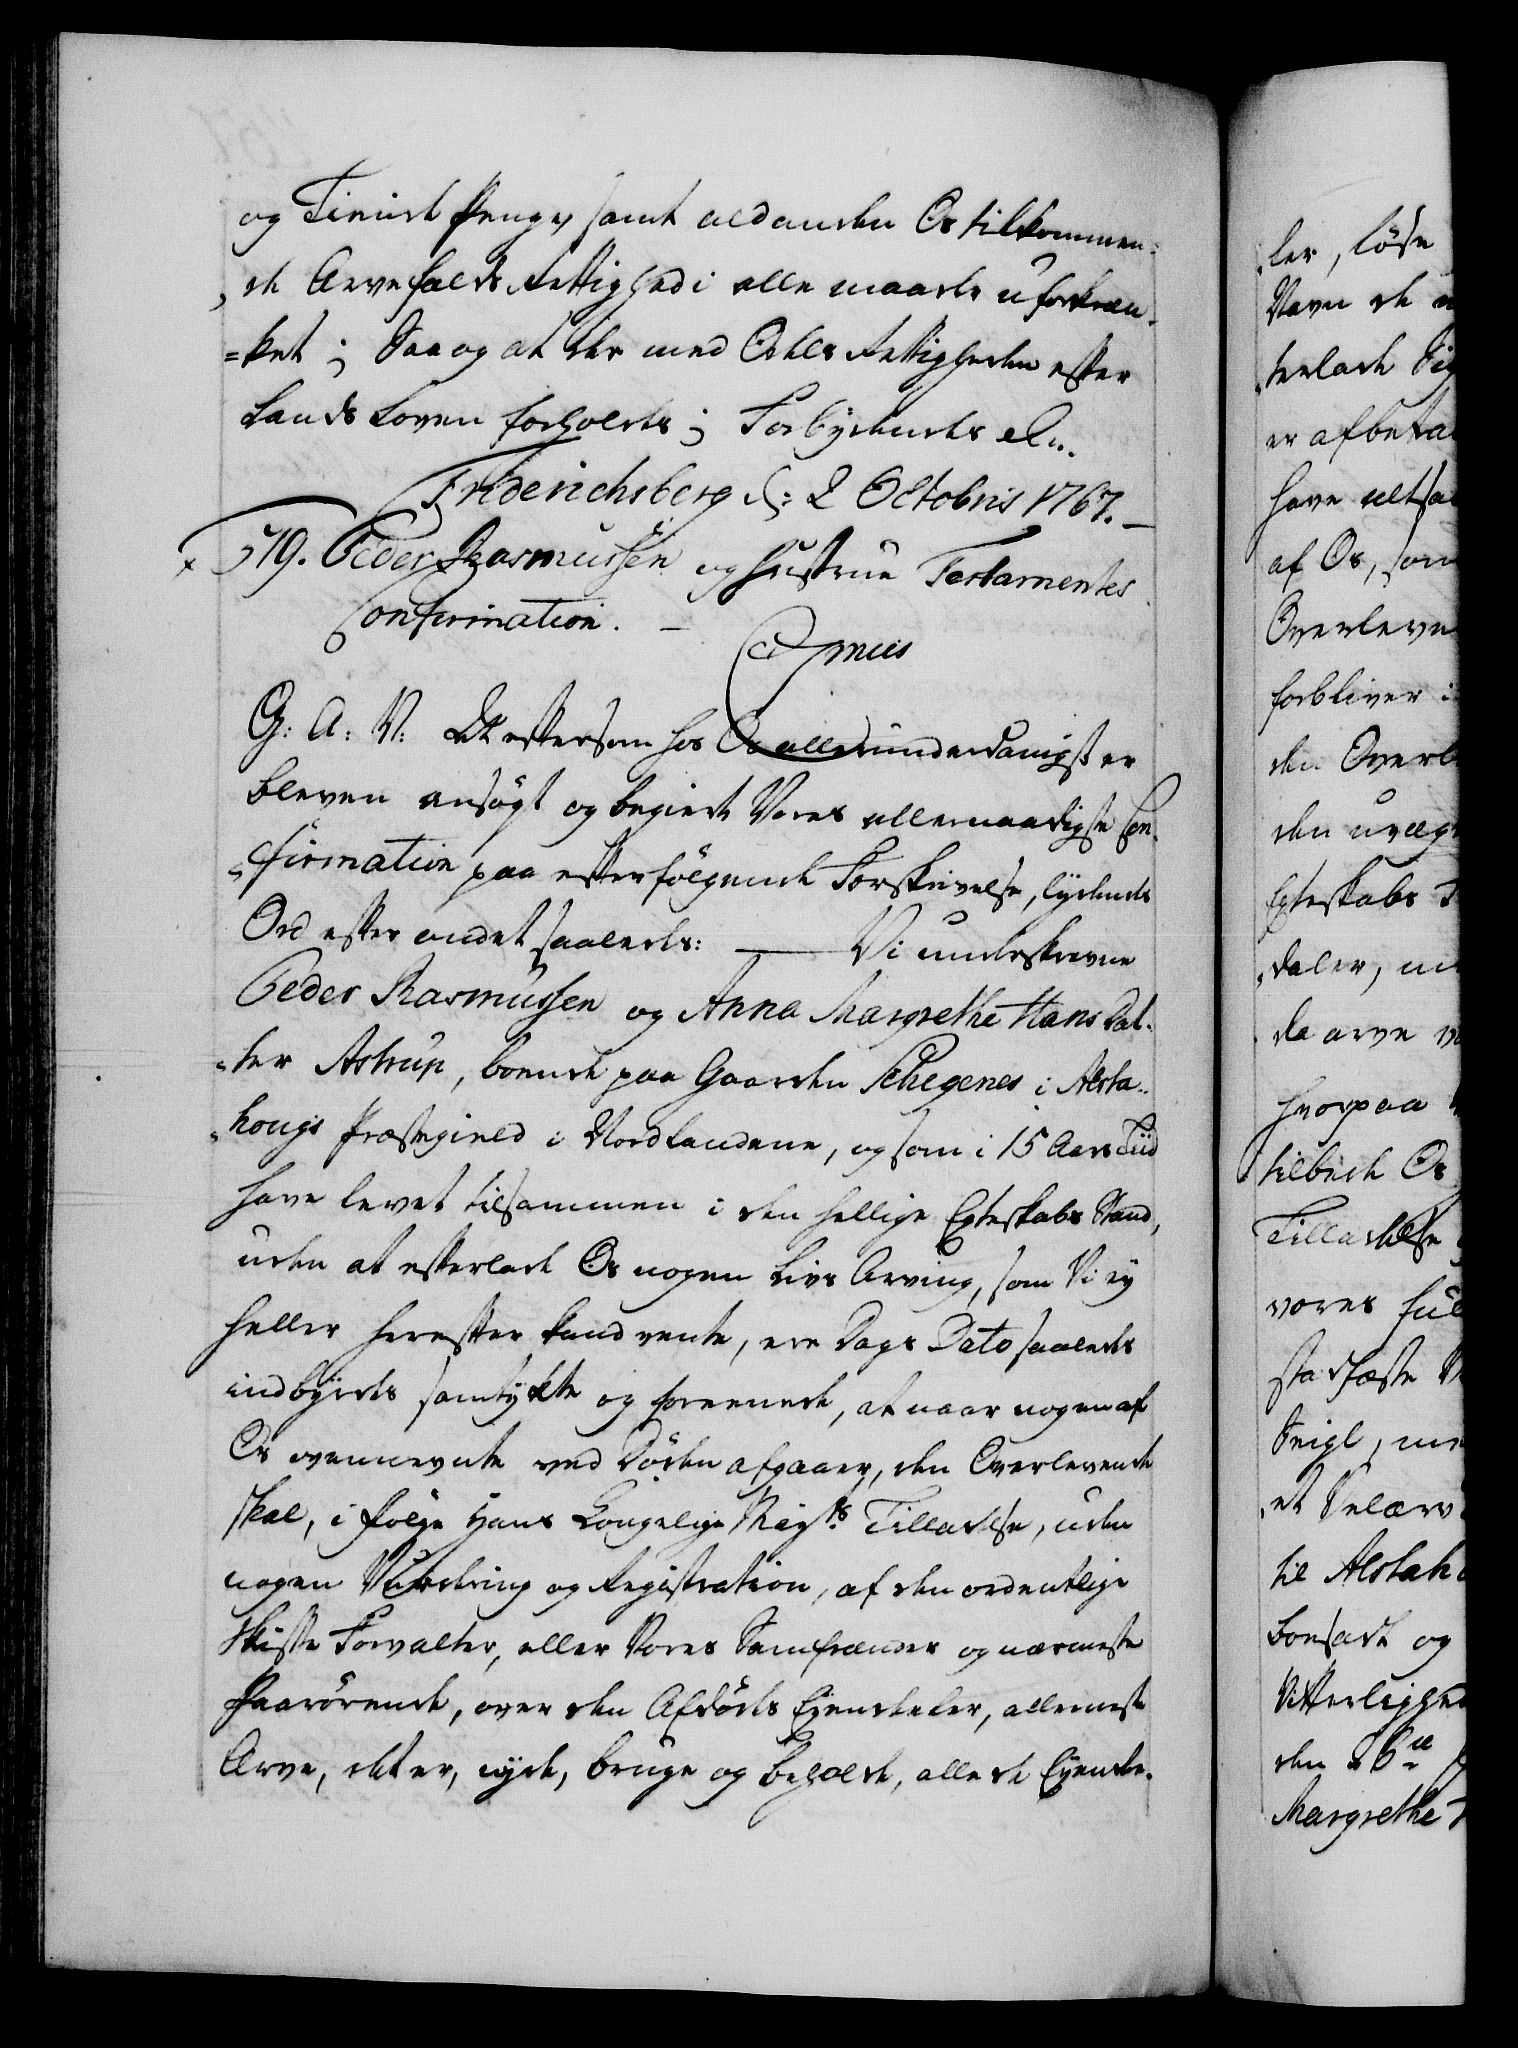 og Tiende Penge, samt ald anden Os tilkommen-
de Arvefalds Rettighed i alle maade uforkræn-
=ket; Saa og at der med Odels Rettigheden efter
Lands Loven forholdes; Forbydendes etc.
Friderichsberg d: 2 Octobris 1767. —
x 519. Peder Rasmussen og Hustrue Testamentes
Confirmation. —
Gratis
G: A: V: At eftersom hos Os allerunderdanigst er
bleven ansögt og begiert Vores allernaadigste Con-
firmation paa efterfölgende Forskrivelse, lydende
Ord efter andet saaledes: — Vi underskrevne
Peder Rasmussen og Anna Margrethe Hans Dat-
ter Astrup, boende paa Gaarden Schegenes i Alsta-
hougs Præstegield i Nordlandene, og som i 15 Aars Tiid
have levet tilsammen i den hellige Egteskabs Stand,
uden at efterlade Os nogen Livs Arving, som Vi ey
heller herefter kand vente, ere Dags Dato saaledes
indbyrdes samtykte og foreenede, at naar nogen af
Os ovennevnte ved Döden afgaaer, den Overlevende
skal, i fölge Hans Kongelige Mayts. Tilladelse, uden
nogen Vurdering og Registration, af den ordentlige
Skifte Forvalter, eller Vores Samfrænder og nærmeste
Paarörende, over den Afdödes Eiendeler, allerneste
Arve, det er, nyde, bruge og beholde, alle de Eyende-
ler, löse
Navn de
terlade
er afbeta
have altsa
af Os, som
Overleve
forbliver i
den Overl
den uvæg
Egteskabs
daler,
da arve
hvorpaa
tilbede Os
Tilladelse
vores ful
stadfæste
Seigl,
et
til Alstah
Boesatte og
Vitterlighed
den 26de
Margrethe